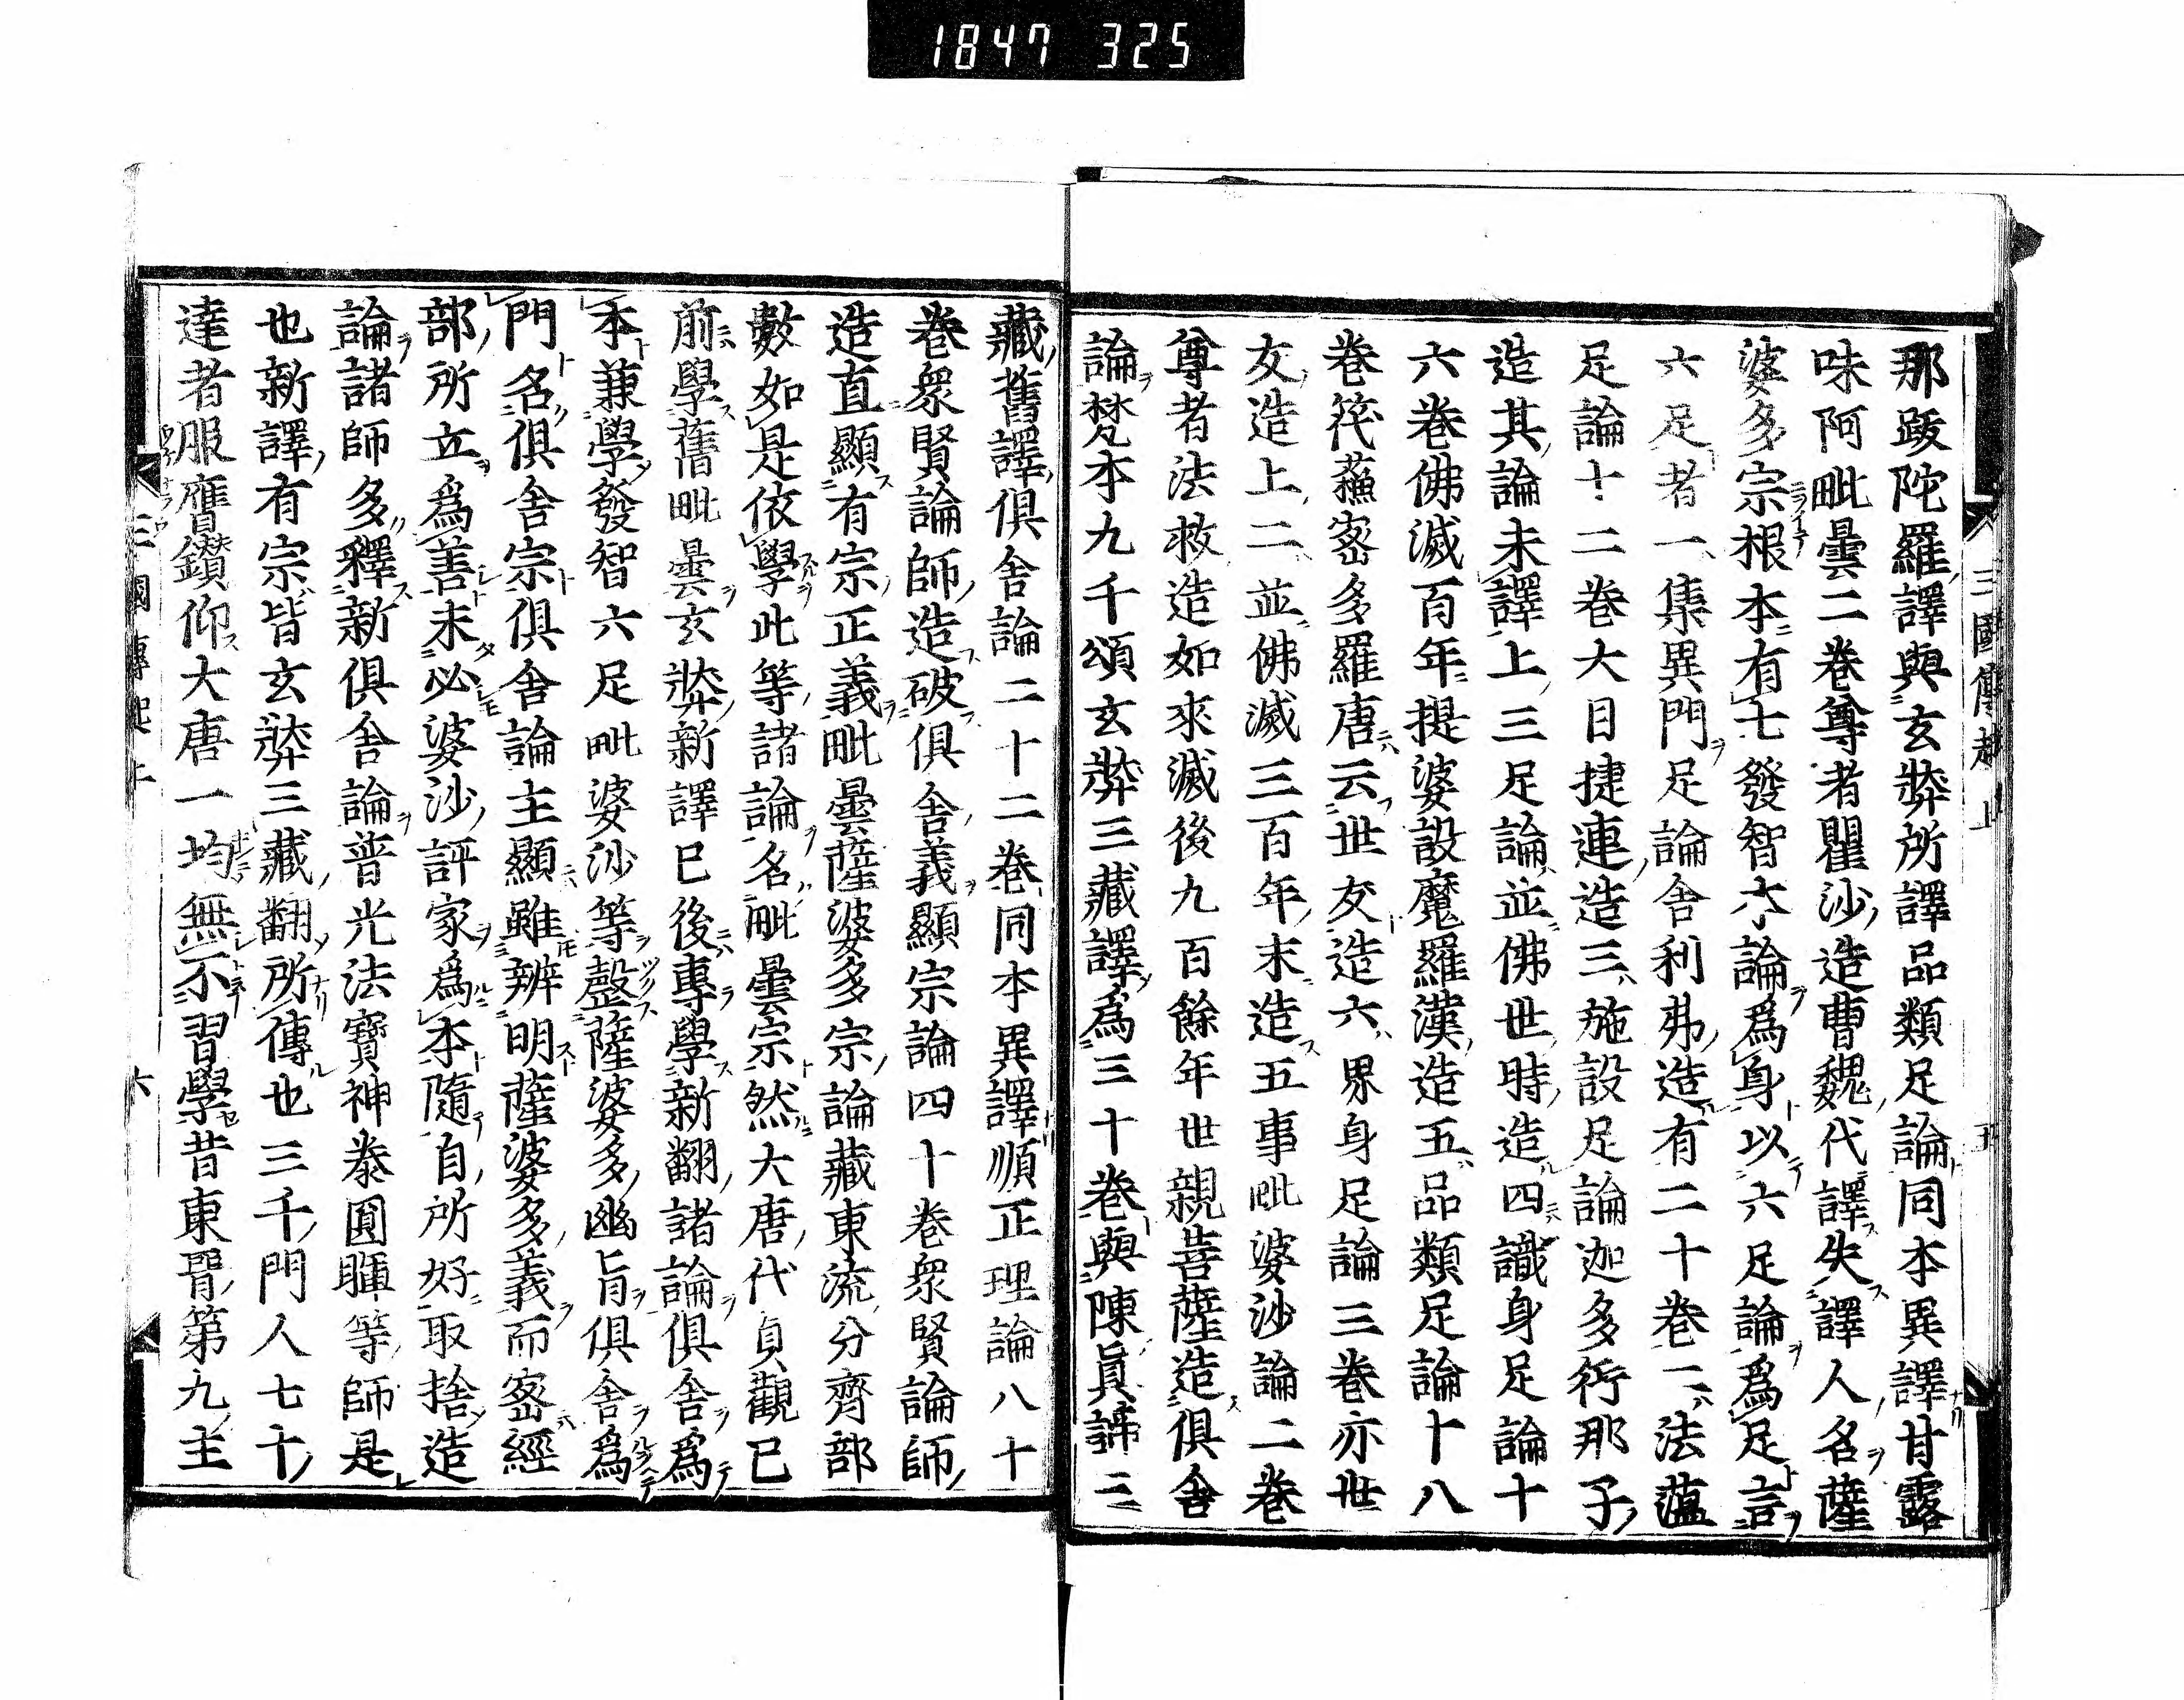 1847 325
三國傳起上 五
那跋陀羅譯與玄奘所譯品類足論同本異譯甘露
味阿毗曇二卷尊者瞿沙造曹魏代譯失譯人名薩
婆多宗根本有七發智本論爲身以六足論爲足言
六足者一集異門足論舍利弗造有二十卷二法蘊
足論十二卷大目揵連造三施設足論迦多衍那子
造其論未譯上三足論並佛世時造四識身足論十
六卷佛滅百年提婆設魔羅漢造五品類足論十八
卷筏蘓密多羅唐云世友造六界身足論三卷亦世
友造上二並佛滅三百年末造五事毗婆沙論二卷
尊者法救造如來滅後九百餘年世親菩薩造俱舍
論梵本九千頌玄奘三藏譯爲三十卷與陳眞諦三
藏舊譯俱舍論二十二卷同本異譯順正理論八十
卷衆賢論師造破俱舍義顯宗論四十卷衆賢論師
造直顯有宗正義毗曇薩婆多宗論藏東流分齊部
數如是依學此等諸論名毗曇宗然大唐代貞觀已
前學舊毗曇玄奘新譯已後專學新翻諸論俱舍爲
本兼學發智六足毗婆沙等整薩婆多幽旨俱舍爲
門名俱舍宗俱舍論主顯雖辨明薩婆多義而密經
部所立爲善未必婆沙評家爲本隨自所好取捨造
論諸師多釋新俱舍論普光法寶神泰圓暉等師是
也新譯有宗皆玄奘三藏翻所傳也三千門人七十
達者服膺鑽仰大唐一均無不習學昔東晉第九主
三國傳起上 六